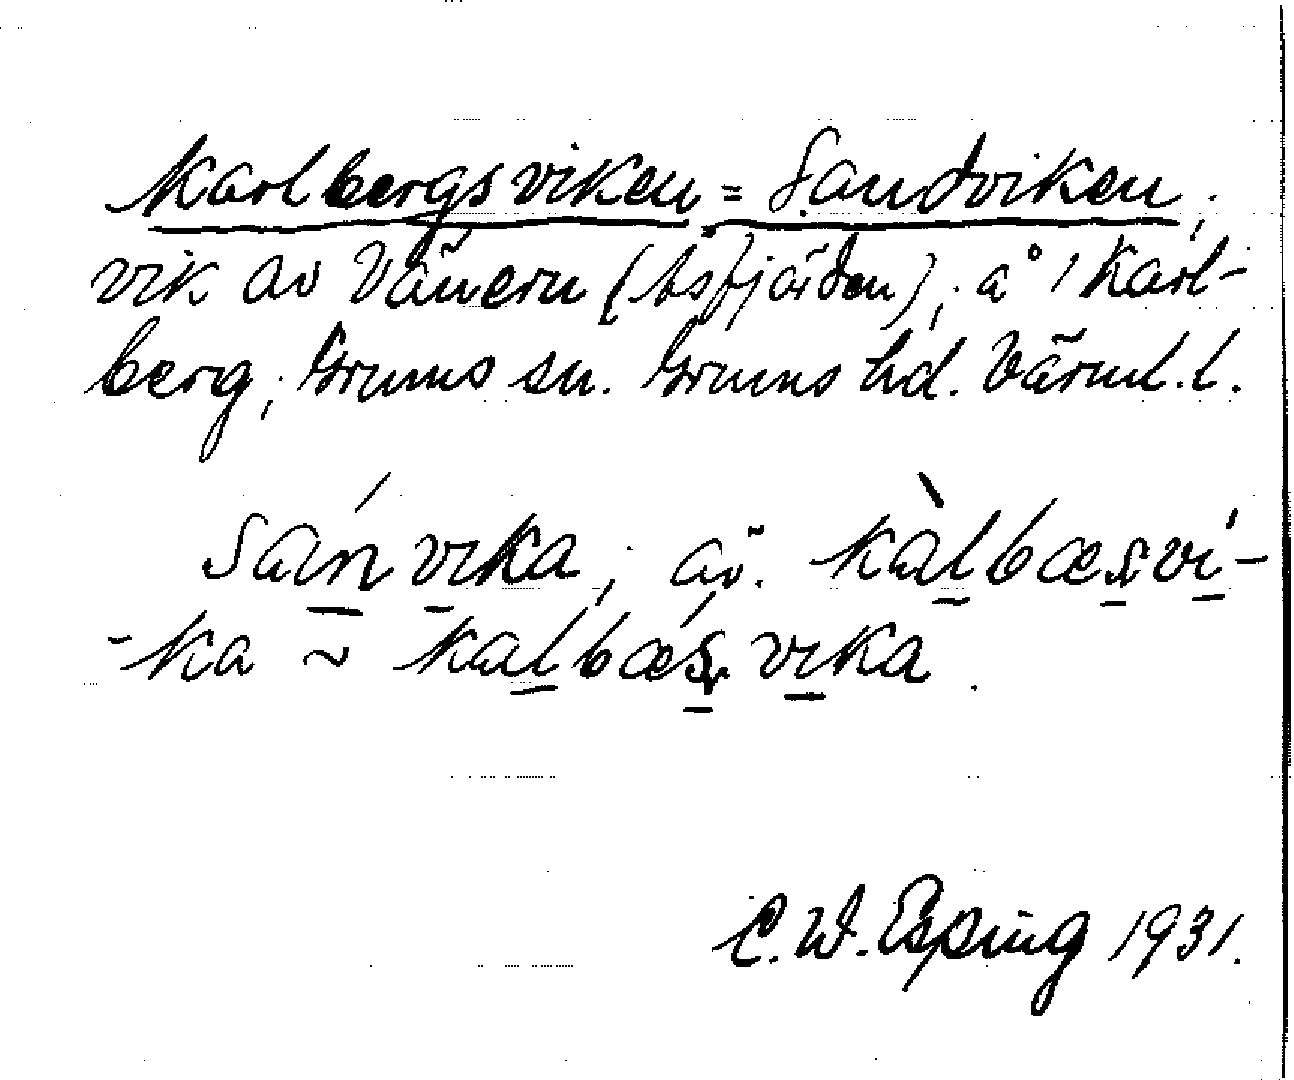 Karlbergsviken = Sandviken;
vik av Vänern (Åsfjärden); å 1 Karl-
berg; Grums sn. Grums hd. Värml. l.
sán vıka; äv. kàlbæsvı-
-ka ~ kalbǽs vıka.
C. W. Esping 1931.